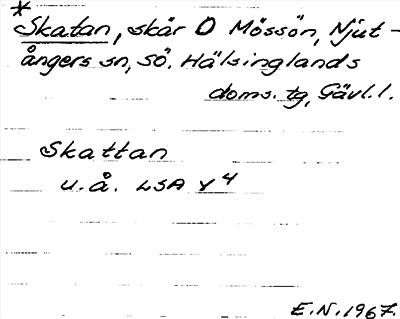 *
Skatan, skär O Mössön, Njut-
ångers sn, Sö. Hälsinglands
doms. tg, Gävl. l.
Skattan
u.å. LSA Y 4
E.N. 1967.